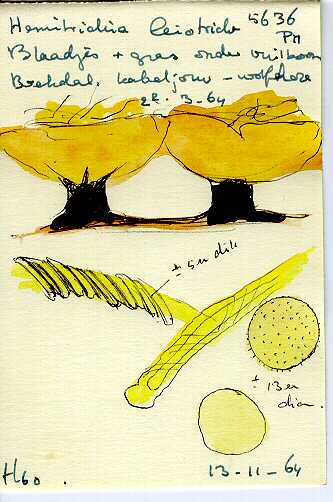 Hemitrichia leiotricha 5636
PM
Blaadjes + gras onder vuilboom
Brekdal. kabeljouw - wolfhoze
22-3-64
± 5u dik
± 13u
diam.
H60.
13-11-64